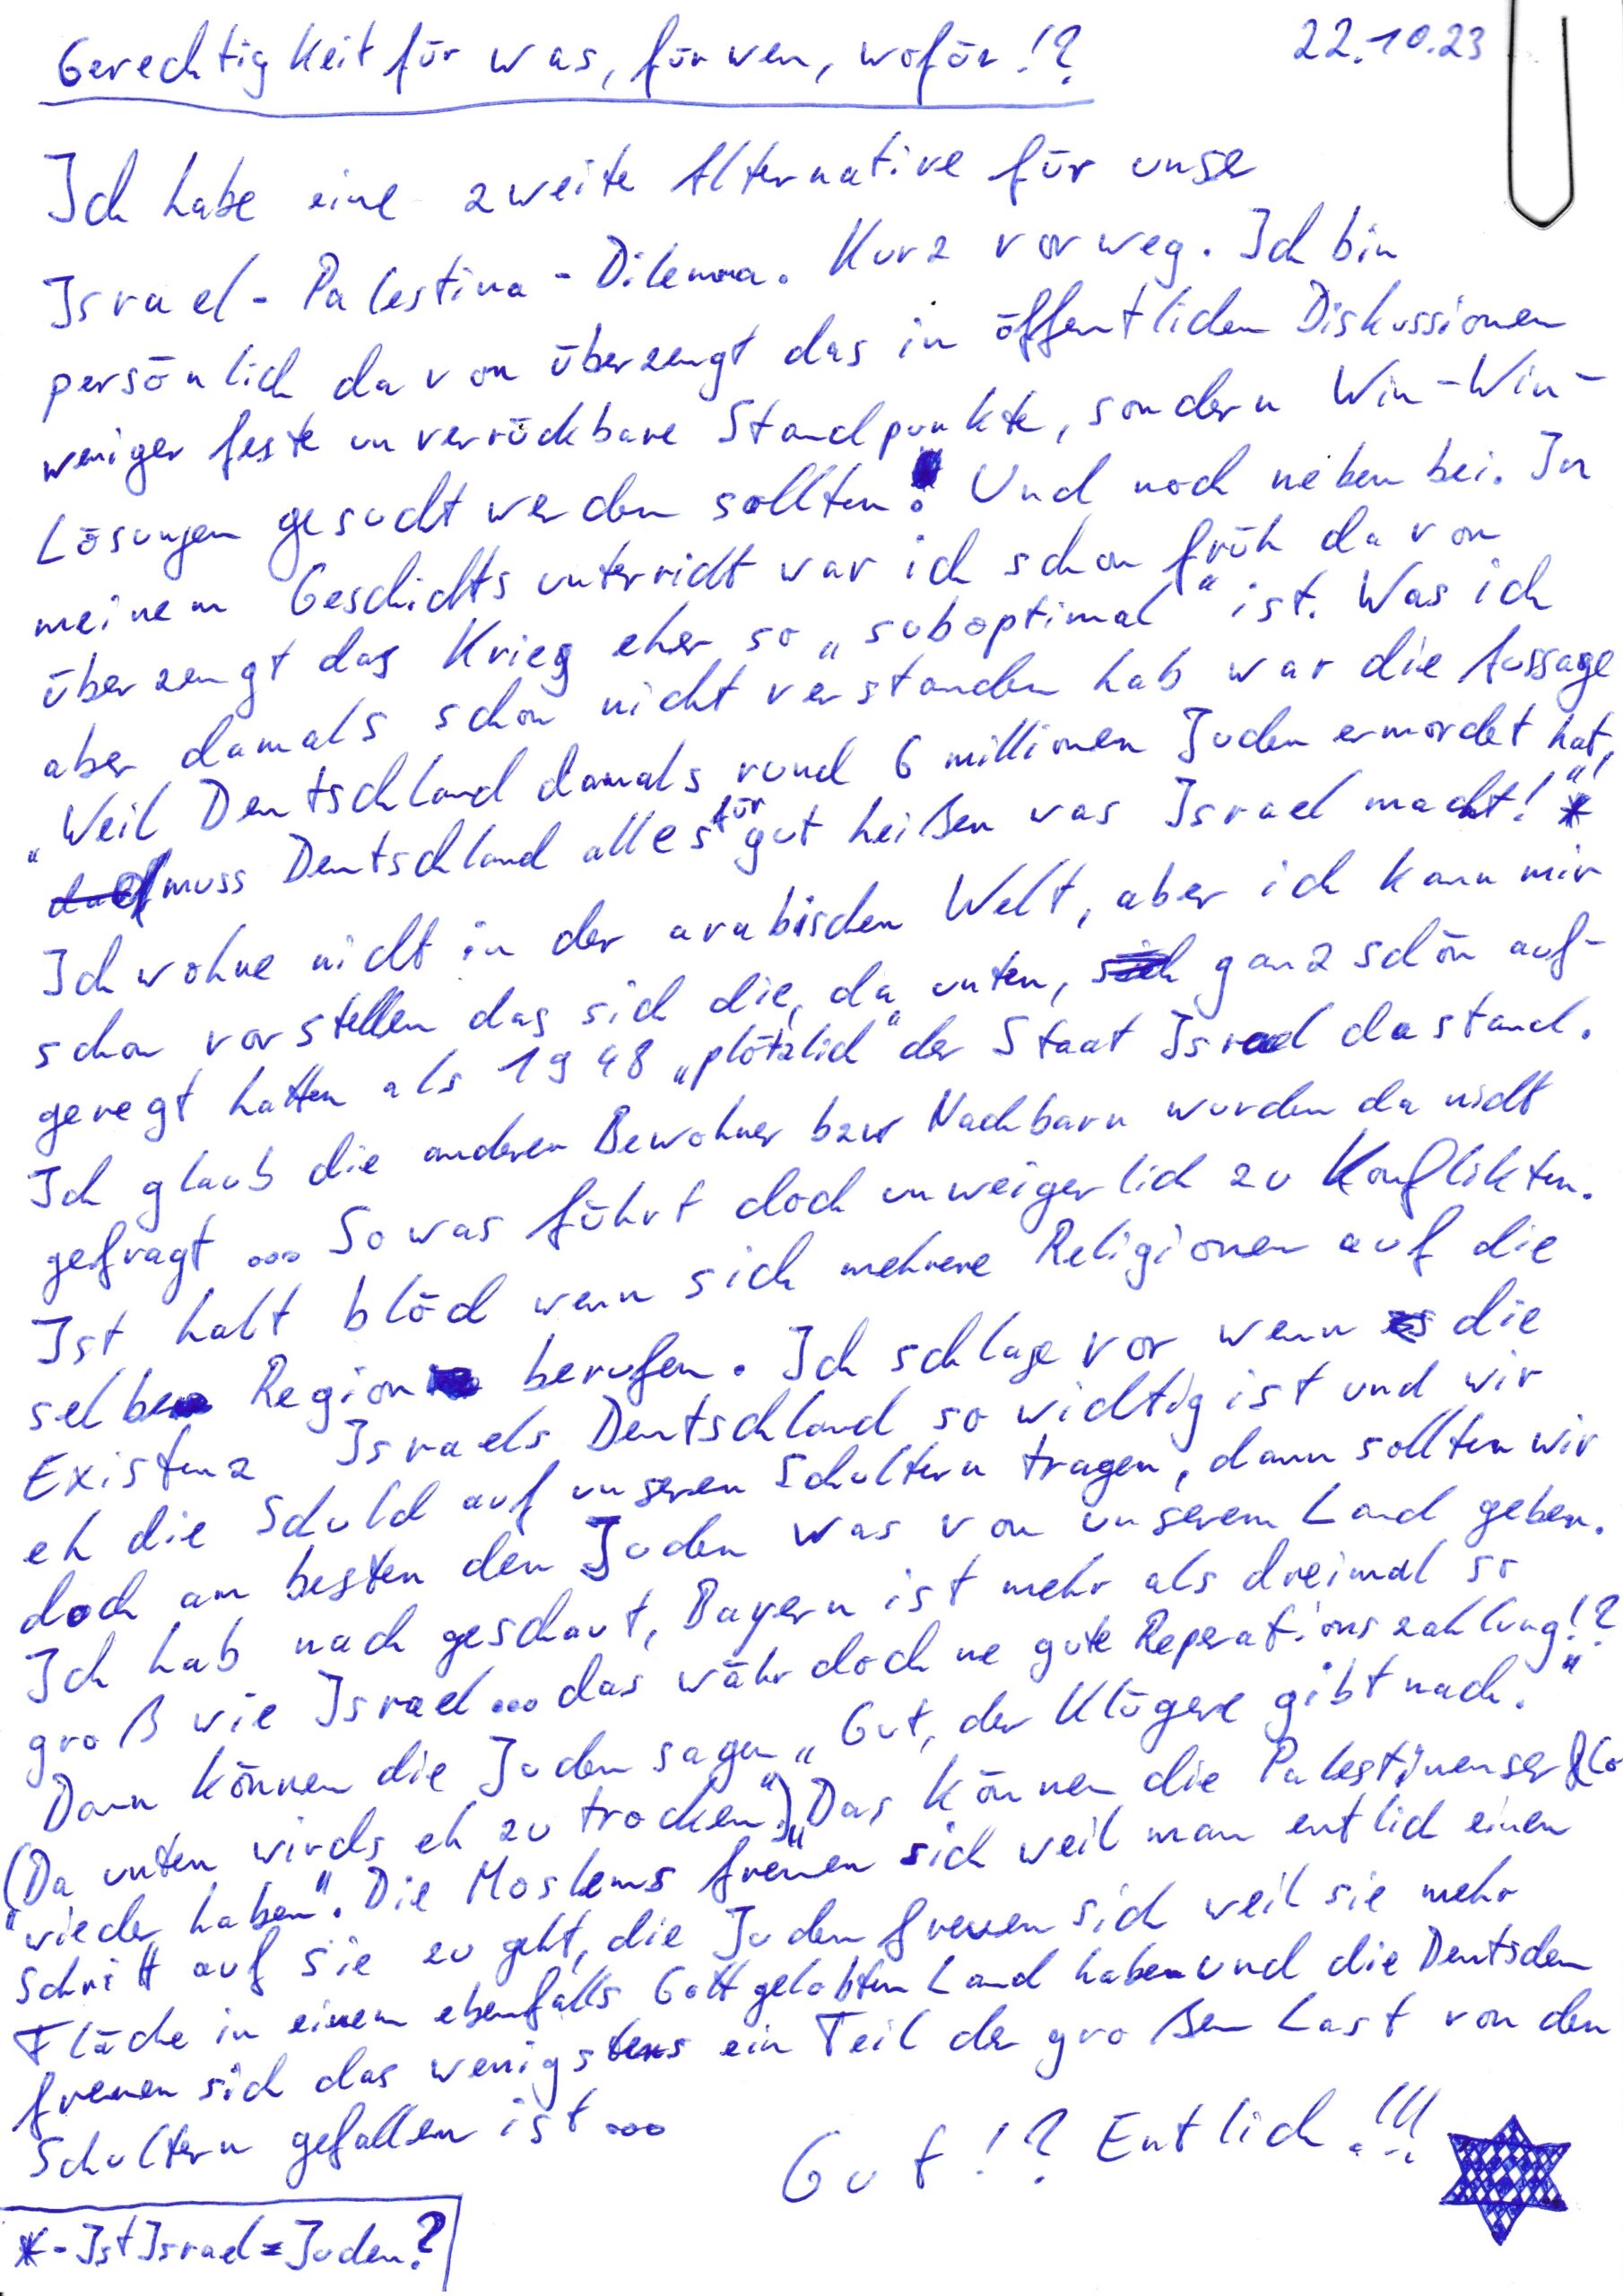 Gerechtigkeit für was, für wen, wofür!? 22.10.23
Ich habe eine zweite Alternative für unse
Israel-Palestina-Dilemma. Kurz vorweg. Ich bin
persönlich davon überzeugt das in öffentlichen Diskussionen
weniger feste unverrückbare Standpunkte, sondern Win-Win-
Lösungen gesucht werden sollten. Und noch nebenbei. In
meinem Geschichtsunterricht war ich schon früh davon
überzeugt das Krieg eher so „suboptimal" ist. Was ich
aber damals schon nicht verstanden hab war die Aussage
„Weil Deutschland damals rund 6 millionen Juden ermordet hat,
muss Deutschland alles für gut heißen was Israel macht!"*
Ich wohne nicht in der arabischen Welt, aber ich kann mir
schon vorstellen das sich die, da unten, ganz schön auf-
geregt hatten als 1948 „plötzlich" der Staat Israel dastand.
Ich glaub die anderen Bewohner bzw Nachbarn wurden da nicht
gefragt ... Sowas führt doch unweigerlich zu Konflikten.
Ist halt blöd wenn sich mehrere Religionen auf die
selbe Region berufen. Ich schlage vor wenn die
Existenz Israels Deutschland so wichtig ist und wir
eh die Schuld auf unseren Schultern tragen, dann sollten wir
doch am besten den Juden was von unserem Land geben.
Ich hab nach geschaut, Bayern ist mehr als dreimal so
groß wie Israel... das währ doch ne gute Reperationszahlung!?
Dann können die Juden sagen „Gut, der Klügere gibt nach."
(Da unten wirds eh zu trocken") „Das können die Palestinenser & Co
wieder haben". Die Moslems freuen sich weil man entlich einen
Schritt auf sie zu geht, die Juden freuen sich weil sie mehr
Fläche in einem ebenfalls Gott gelobten Land haben und die Deutschen
freuen sich das wenigstens ein Teil der großen Last von den
Schultern gefallen ist ...
Gut!? Entlich...!!!
*-Ist Israel = Juden?